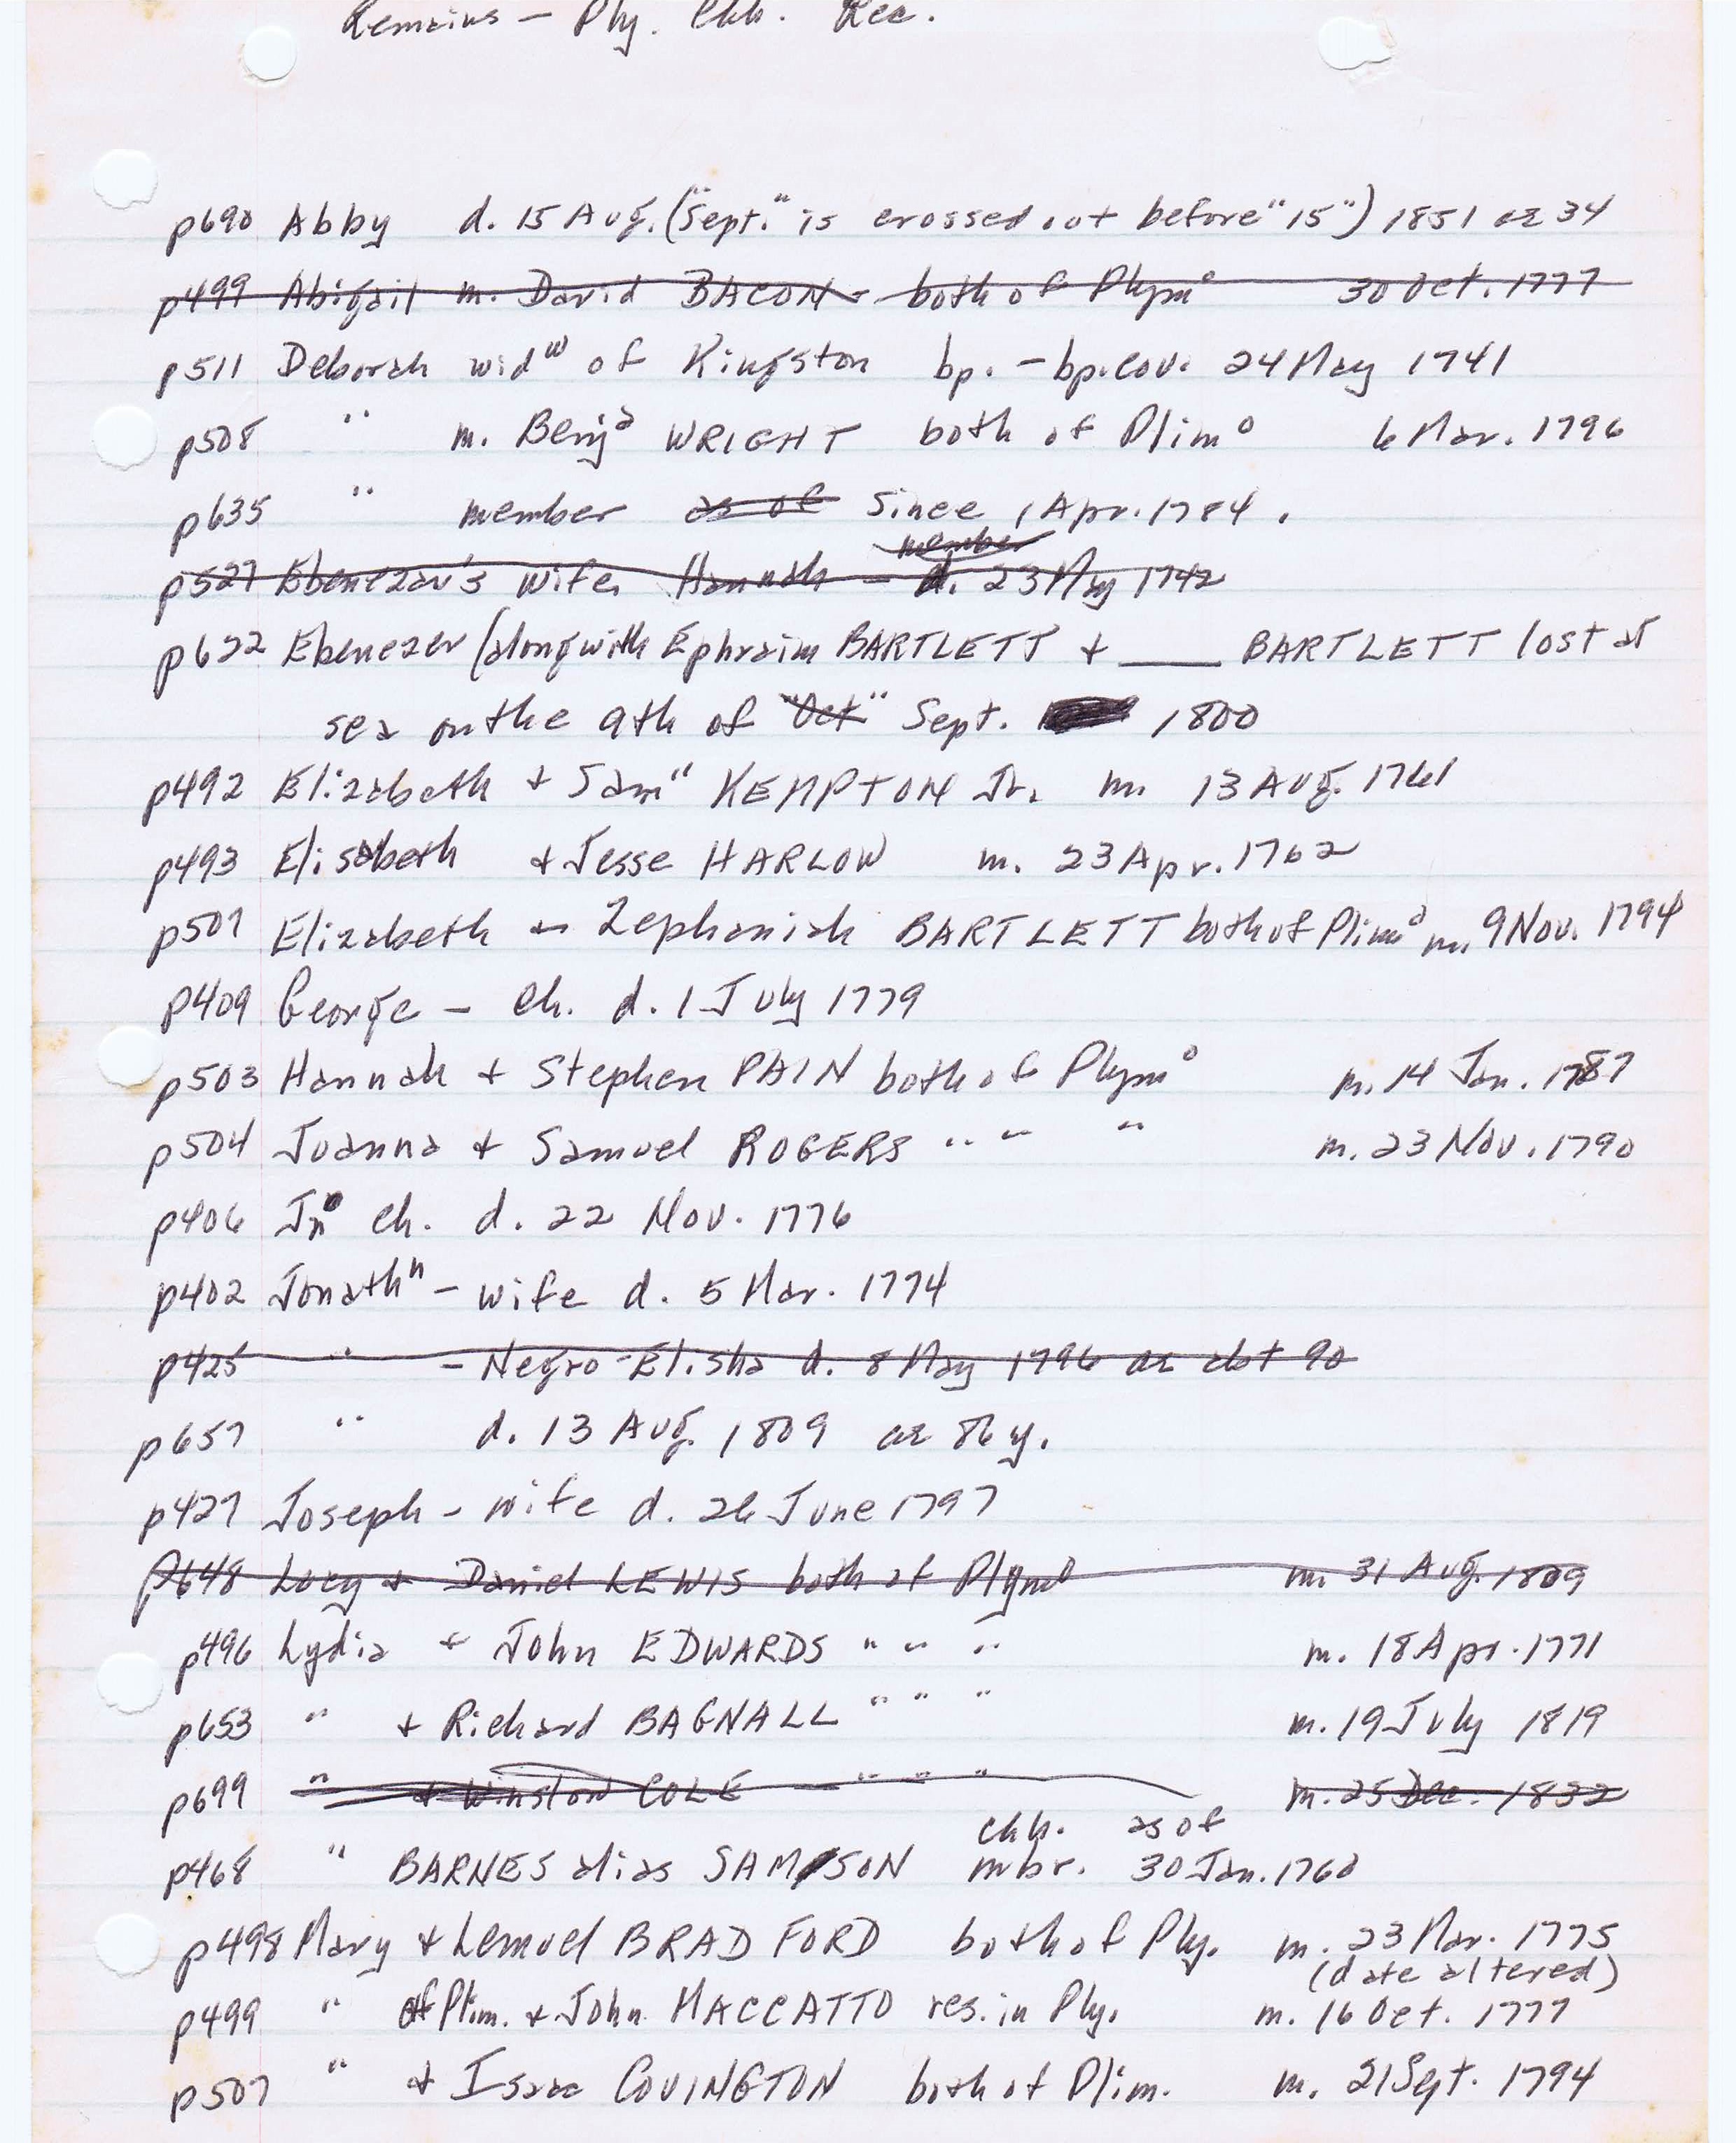 Remains — Ply. Chh. Rec.
p690 Abby d. 15 Aug. ("Sept." is crossed out before "15") 1851 ae 34
p499 Abigail m. David BACON - both of Plymº 30 Oct. 1777
p511 Deborah widʷ of Kingston bp. - bp.cov. 24 May 1741
p508 " m. Benjᵃ WRIGHT both of Plimº 6 Mar. 1796
p635 " member as of since 1 Apr. 1784.
member
p527 Ebenezar's wife, Hannah - d. 23 May 1742
p622 Ebenezer (along with Ephraim BARTLETT + ___ BARTLETT lost at
sea on the 9th of "Oct" Sept. 1800
p492 Elizabeth + Sam" KEMPTON Jr. m. 13 Aug. 1761
p493 Elisabeth + Jesse HARLOW m. 23 Apr. 1762
p507 Elizabeth + Zephaniah BARTLETT both of Plimº m. 9 Nov. 1794
p409 George - ch. d. 1 July 1779
p503 Hannah + Stephen PAIN both of Plymº m. 14 Jan. 1787
p504 Joanna + Samuel ROGERS " " " m. 23 Nov. 1790
p406 Jnº ch. d. 22 Nov. 1776
p402 Jonathⁿ - wife d. 5 Mar. 1774
p425 " - Negro Elisha d. 8 May 1796 ae abt 90
p657 " d. 13 Aug. 1809 ae 86 y.
p427 Joseph - wife d. 26 June 1797
p648 Lucy + Daniel LEWIS both of Plymº m. 31 Aug. 1809
p496 Lydia + John EDWARDS " " " m. 18 Apr. 1771
p653 " + Richard BAGNALL " " " m. 19 July 1819
p699 " + Winslow COLE - " " " m. 25 Dec. 1832
chh. as of
p468 " BARNES alias SAMPSON mbr. 30 Jan. 1760
p498 Mary + Lemuel BRADFORD both of Ply. m. 23 Mar. 1775
(date altered)
p499 " of Plim. + John MACCATTO res. in Ply. m. 16 Oct. 1777
p507 " + Isaac COVINGTON both of Plim. m. 21 Sept. 1794